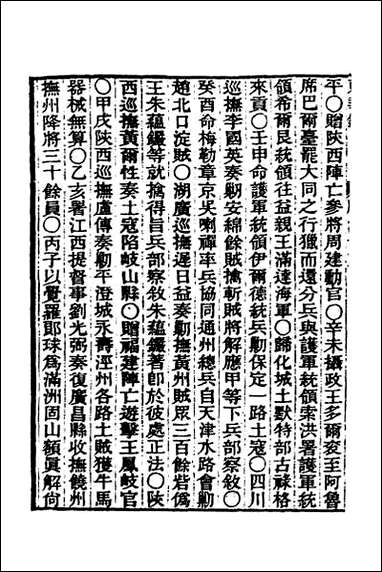 平〇贈陝西陣亡參將周建勳官〇辛未攝政王多爾袞至阿魯
席巴爾臺罷大同之行獵而還分兵與護軍統領索洪署護軍統
領希爾艮統領往益親王滿達海軍〇歸化城土默特部古祿格
來貢〇壬申命護軍統領伊爾德統兵勦保定一路土寇〇四川
巡撫李國英奏勦安綿餘賊擒斬賊將解應甲等下兵部察敘〇
癸酉命梅勒章京吳喇禪率兵協同通州總兵自天津水路會勦
趙北口淀賊〇湖廣巡撫遲日益奏勦撫黃州賊眾三百餘砦僞
王朱蘊鑨等就擒得旨兵部察敘朱蘊鑨著卽於彼處正法〇陝
西巡撫黃爾性奏土寇陷岐山縣〇贈福建陣亡遊擊王鳳岐官
〇甲戌陝西巡撫盧傳奏勦平澄城永壽涇州各路土賊獲牛馬
器械無算〇乙亥署江西提督事劉光弼奏復廣昌縣收撫饒州
撫州降將三十餘員〇丙子以覺羅郎球爲滿洲固山額眞解尙